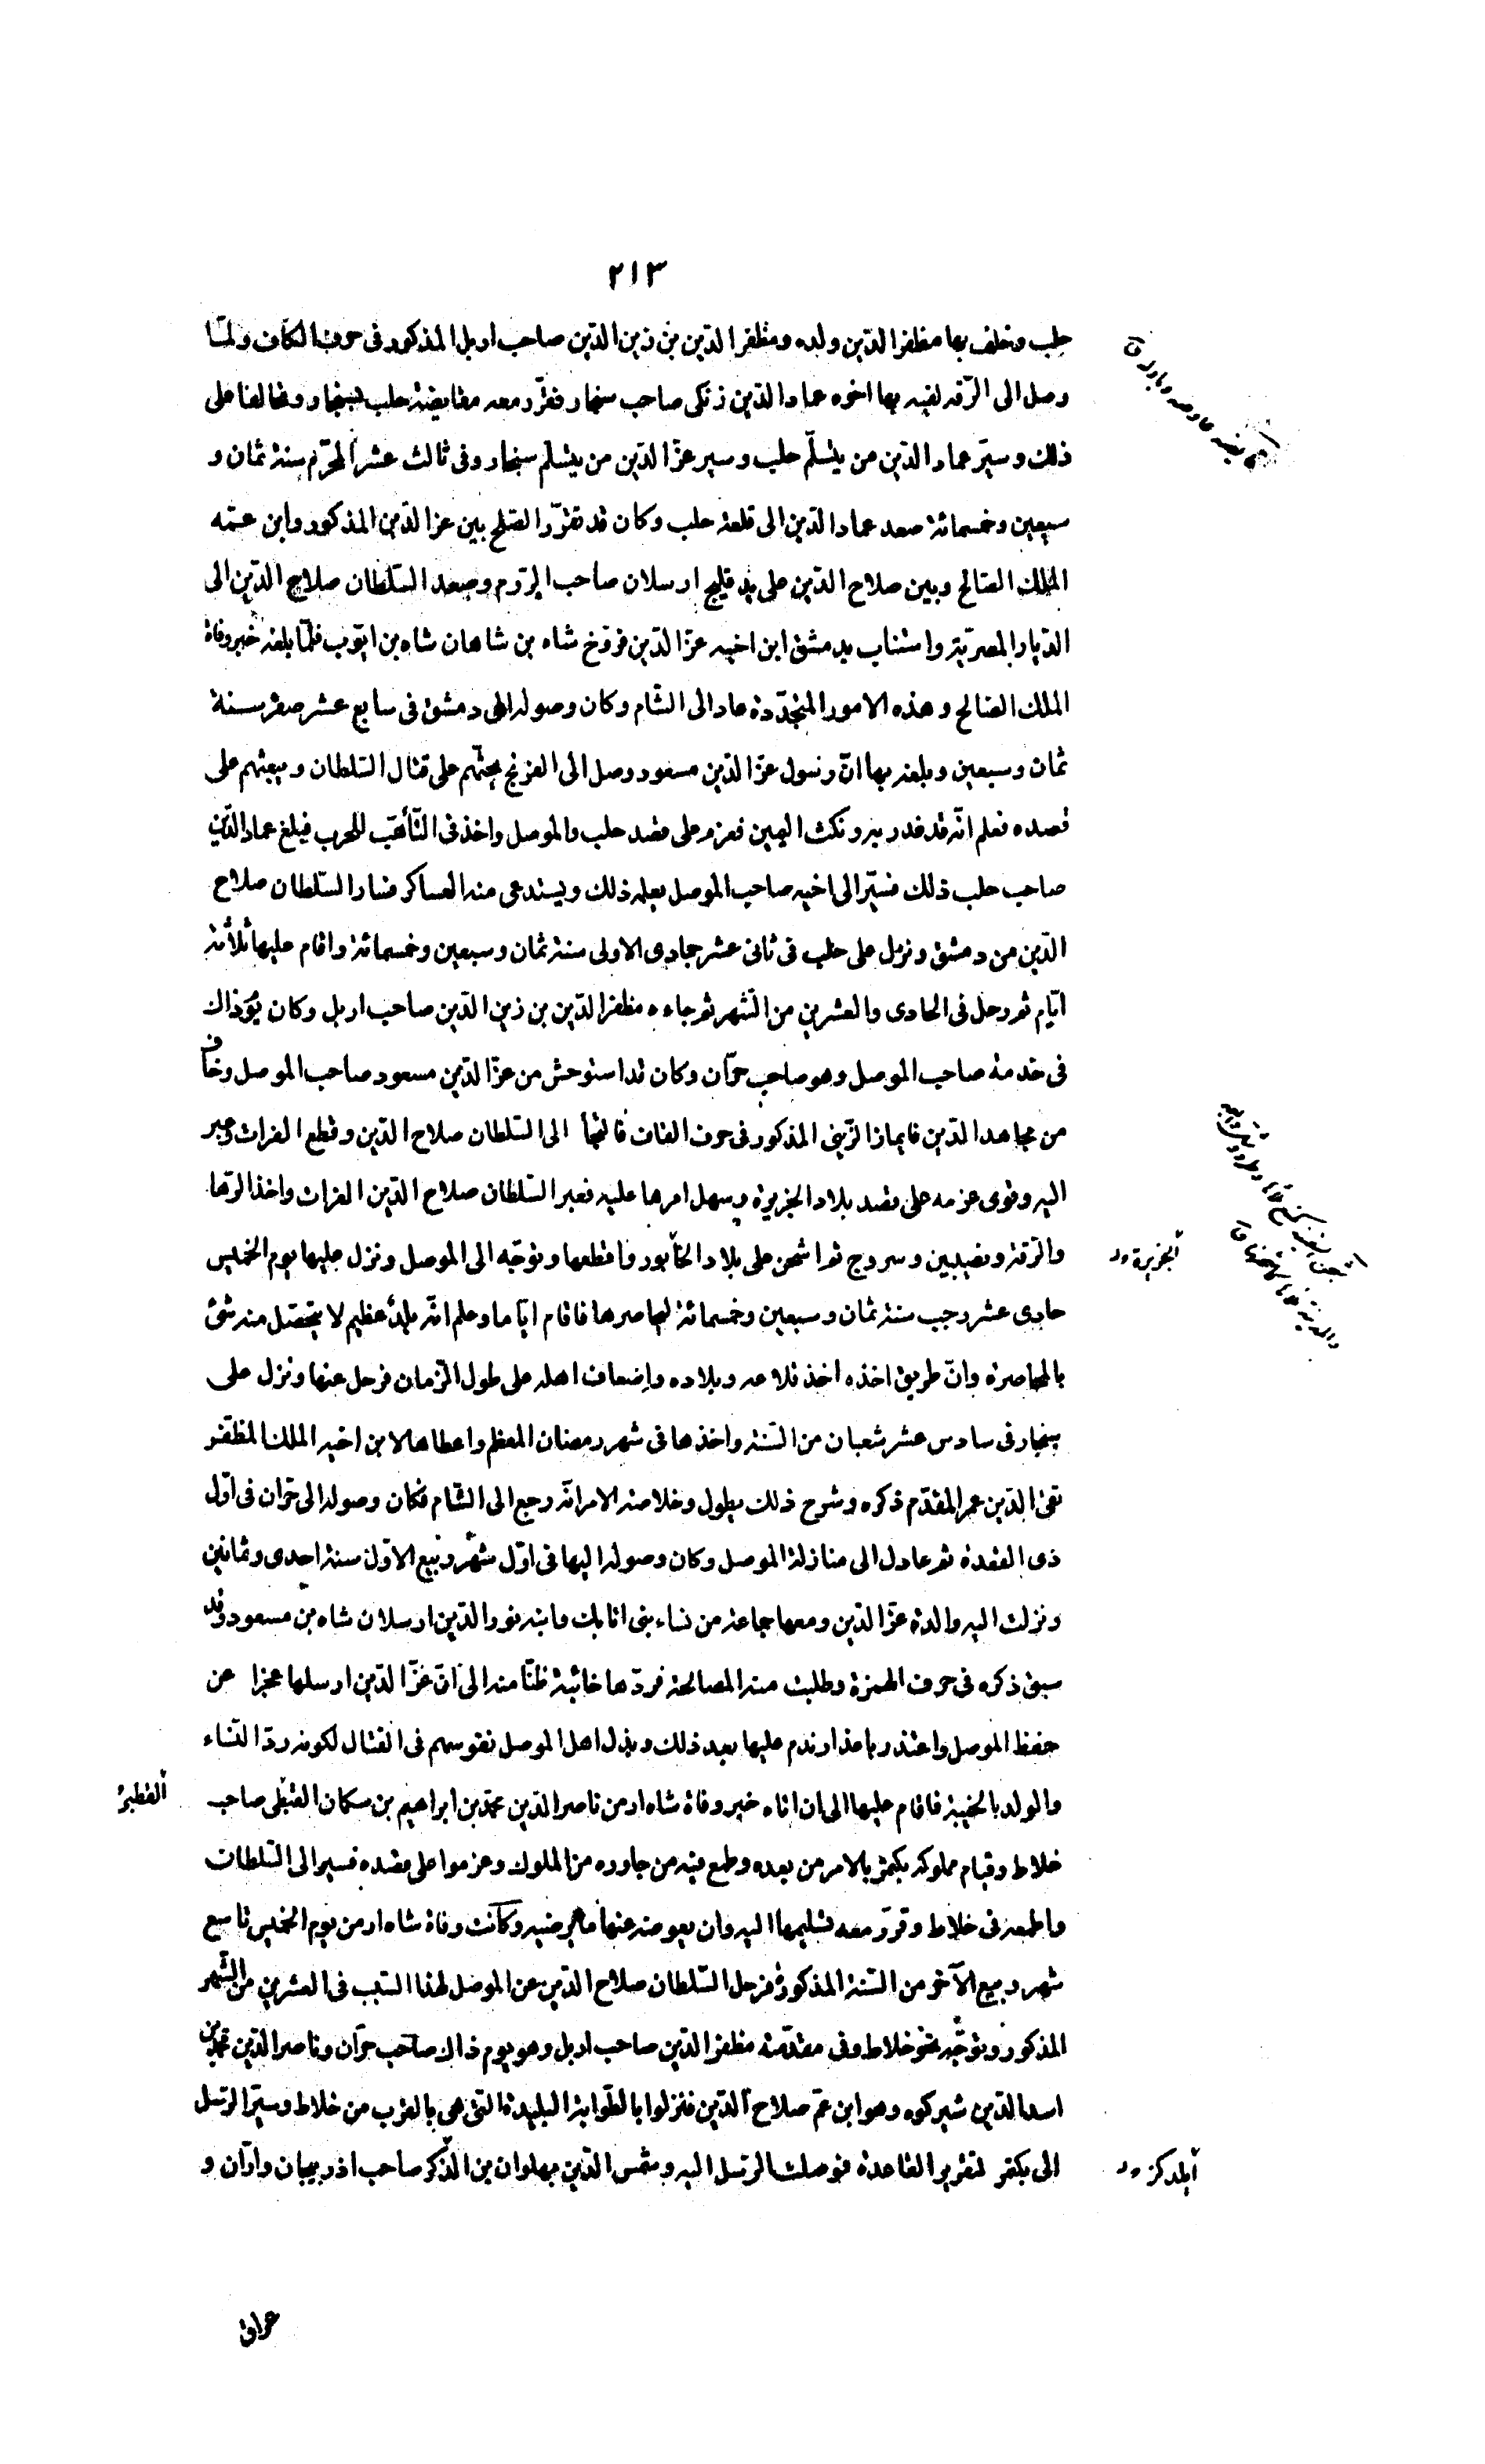 ٢١٣
حلب وخلف بها مظفر الدين ولده ومظفر الدين بن زين الدين صاحب اربل المذكور فى حرف الكاف ولمّا
وصل الى الرّقه لقيه بها اخوه عماد الدين زنكى صاحب سنجار فقرّر معه مقايضة حلب بسنجار وتحالفا على
ذلك وسيّر عماد الدين من يتسلّم حلب وسير عزّ الدين من يتسلم سنجار وفى ثالث عشر المحرّم سنة ثمان و
سبعين وخمسمائة صعد عماد الدين الى قلعة حلب وكان قد تقرّر الصّلح بين عز الدين المذكور وابن عمّه
الملك الصالح وبين صلاح الدين على يد قليج ارسلان صاحب الروّم وصعد السّلطان صلاح الدين الى
الدّيار المصريّة واستناب بدمشق ابن اخيه عزّ الدين فروّخ شاه بن شاهان شاه بن ايّوب فلمّا بلغه خبر وفاة
الملك الصالح وهذه الامور المتجدّدة عاد الى الشّام وكان وصوله الى دمشق فى سابع عشر صفر سنة
ثمان وسبعين وبلغه بها انّ رسول عزّ الدين مسعود وصل الى الفرنج يحثّهم على قتال السّلطان ويبعثهم على
قصده فعلم انّه قد غدر به ونكث اليمين فعزم على قصد حلب والموصل واخذ فى التّأهّب للحرب فبلغ عماد الدّين
صاحب حلب ذلك فسيّر الى اخيه صاحب الموصل يعلمه ذلك ويستدعى منه العساكر فسار السّلطان صلاح
الدّين من دمشق ونزل على حلب فى ثانى عشر جمادى الاولى سنة ثمان وسبعين وخمسمائة واقام عليها ثلاثة
ايّام ثم رحل فى الحادى والعشرين من الشّهر ثم جاءه مظفر الدّين بن زين الدّين صاحب اربل وكان يؤذاك
فى خدمة صاحب الموصل وهو صاحب حرّان وكان قد استوحش من عزّ الدّين مسعود صاحب الموصل وخاف
من مجاهد الدّين قايماز الزّينى المذكور فى حرف القاف فالتجأ الى السّلطان صلاح الدّين وقطع الفرات وعبر
اليه وقوى عزمه على قصد بلاد الجزيرة وسهل امرها عليه فعبر السّلطان صلاح الدّين الفرات واخذ الرّها
والرّقة ونصيبين وسروج ثم اشحن على بلاد الخابور واقطعها وتوجّه الى الموصل ونزل عليها يوم الخميس
الجزيرة
حادى عشر رجب سنة ثمان وسبعين وخمسمائة ليحاصرها فاقام ايّاما وعلم انّه بلد عظيم لا يتحصّل منه شئ
بالمحاصرة وانّ طريق اخذه اخذ قلاعه وبلاده واضعاف اهله على طول الزّمان فرحل عنها ونزل على
سنجار فى سادس عشر شعبان من السّنة واخذها فى شهر رمضان المعظم واعطاها لابن اخيه الملك المظفّر
تقىّ الدّين عمر المقدّم ذكره وشرح ذلك يطول وخلاصة الامر انّه رجع الى الشّام فكان وصوله الى حرّان فى اوّل
ذى القعدة ثم عاد الى منازلة الموصل وكان وصوله اليها فى اوّل شهر ربيع الاوّل سنة احدى وثمانين
ونزلت اليه والدة عزّ الدّين ومعها جماعة من نساء بنى اتابك وابنه نور الدّين ارسلان شاه بن مسعود وقد
سبق ذكره فى حرف الهمزة وطلبت منه المصالحة فردّها خائبة ظنّا منه الى انّ عزّ الدّين ارسلها عجزا عن
حفظ الموصل واعتذر باعذار ندم عليها بعد ذلك وبذل اهل الموصل نفوسهم فى القتال لكونه ردّ النّساء
والولد بالخيبة فاقام عليها الى ان اتاه خبر وفاة شاه ارمن ناصر الدّين محمّد بن ابراهيم بن سكمان القطبى صاحب
خلاط وقيام مملوكه بكتمر بالامر من بعده وطمع فيه من جاوره من الملوك وعزموا على قصده فسير الى السّلطان
واطمعه فى خلاط وقرّر معه تسليمها اليه وان يعوضه عنها ما يرضيه وكانت وفاة شاه ارمن يوم الخميس تاسع
شهر ربيع الآخر من السّنة المذكورة فرحل السّلطان صلاح الدّين عن الموصل لهذا السّبب فى العشرين من الشّهر
المذكور وتوجّه نحو خلاط وفى مقدّمته مظفر الدّين صاحب اربل وهو يوم ذاك صاحب حرّان وناصر الدّين محمّد بن
اسد الدّين شيركوه وهو ابن عمّ صلاح الدّين فنزلوا بالطّوابة البليدة التى هى بالقرب من خلاط وسيّر الرّسل
الى بكتمر لتقرير القاعدة فوصلت الرّسل اليه وشمس الدّين بهلوان بن الذكر صاحب اذربيجان وارّان و
ايلدكز
عراق